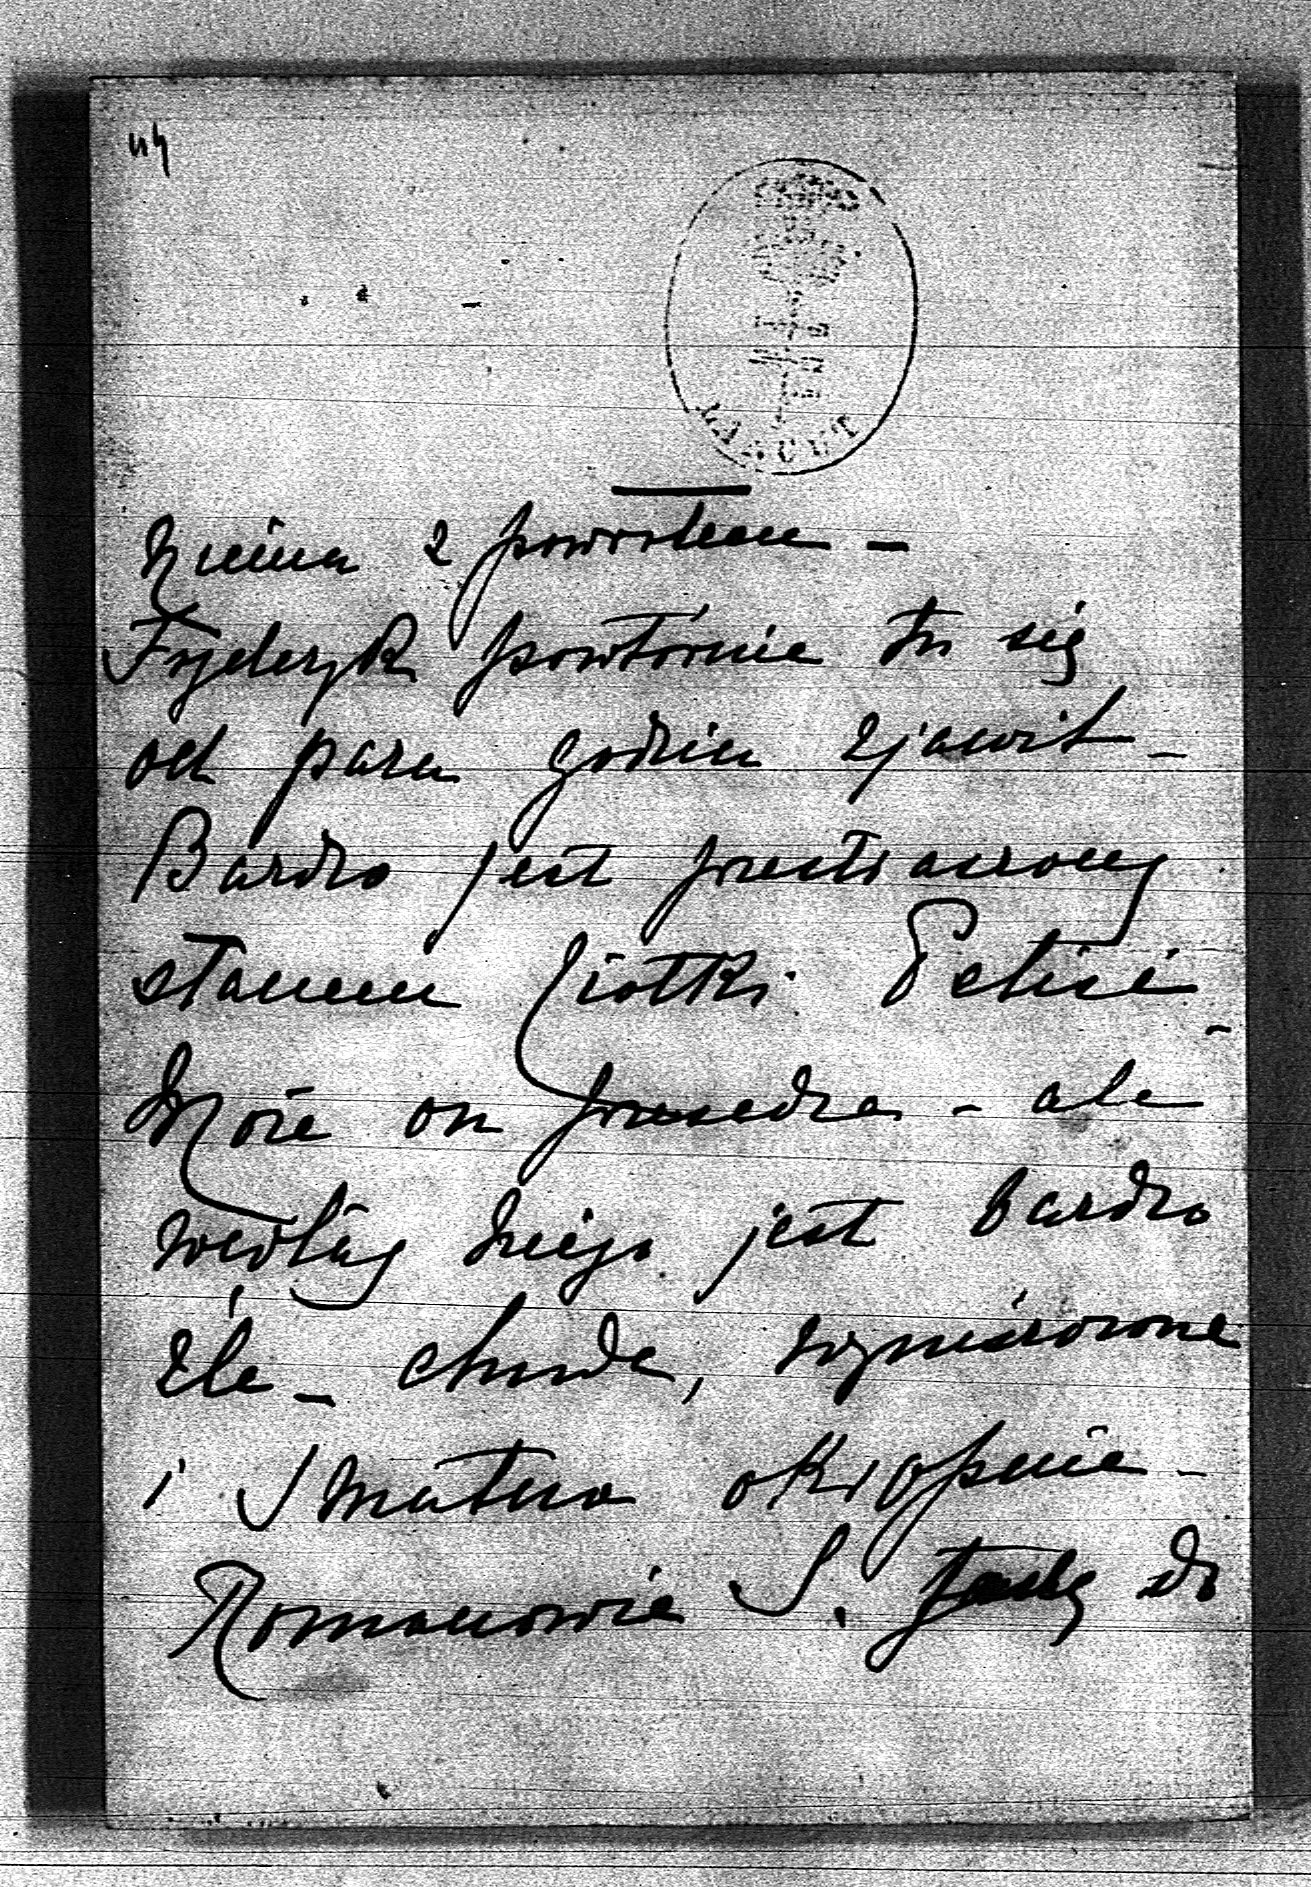 44
ŁAŃCUT
z powrotem –
Fryderyk powtórnie tu się
od paru godzin zjawił –
Bardzo jest przestraszony
stanem Ciotki Felisi –
Może on przesadza – ale
według niego jest bardzo
źle – chuda, wyniszczona
i smutna okropnie –
Romanowie S. jadą do